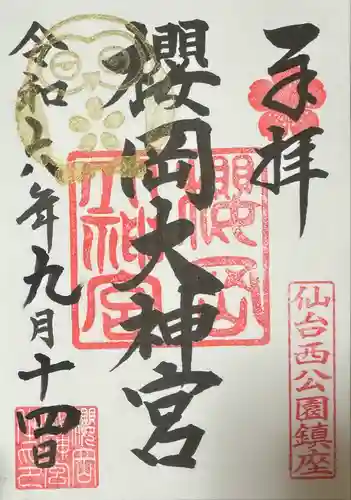 奉拝
仙台西公園鎮座
櫻岡大神宮
櫻岡
大神宮
令和六年九月十四日